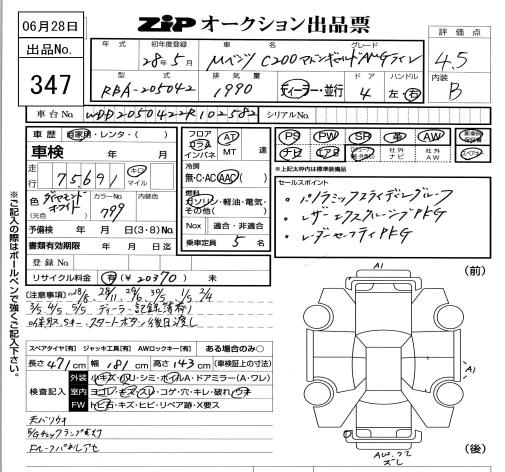 06月28日
ZiP オークション出品票
出品No.
347
年式 初年度登録 車名 グレード 評価点
28年5月 Mベンツ C200 4.5
内装 B
型式 排気量 ドア ハンドル
RBA-205042 1990 ディーラー・並行 4 左・右
車台No. WDD2050422R102582 シリアルNo.
車歴 自家用・レンタ・( )
車検 年 月
走行 75,691 キロ マイル
色 ダイヤモンドホワイト (元色) カラーNo. 799 内装色
予備検 年 月 日(3・8)No.
書類有効期限 年 月 日迄
登録No.
リサイクル料金 有(¥20370) 未
フロア コラム インパネ AT MT 速
冷房 無・C・AC・AAC( )
燃料 ガソリン・軽油・電気・その他( )
Nox 適合・非適合
乗車定員 5 名
PS PW SR 革 AW
ナビ エアB 社外ナビ 社外AW スペアキー
※上記太枠内は標準装備品
セールスポイント
・パノラミックスライディングルーフ
・レザーエクスクルーシブPKG
・レーダーセーフティPKG
※ご記入の際はボールペンで強くご記入下さい。
[注意事項]
ディーラー記録簿有り
スタートボタン後日渡し
スペアタイヤ[有] ジャッキ工具[有] AWロックキー[有] ある場合のみ○
長さ 471cm 幅 181cm 高さ 143cm (車検証上の寸法)
検査記入
外装 小キズ・凹・シミ・ホイルA・ドアミラー(A・ワレ)
室内 ヨゴレ・キズ・スレ・コゲ・穴・キレ・破れ・ウキ
FW トビ石・キズ・ヒビ・リペア跡・X要ス
天バリウキ
E/Gチェックランプ点灯
FルーフパネルアセA1
(前)
A1
(後)